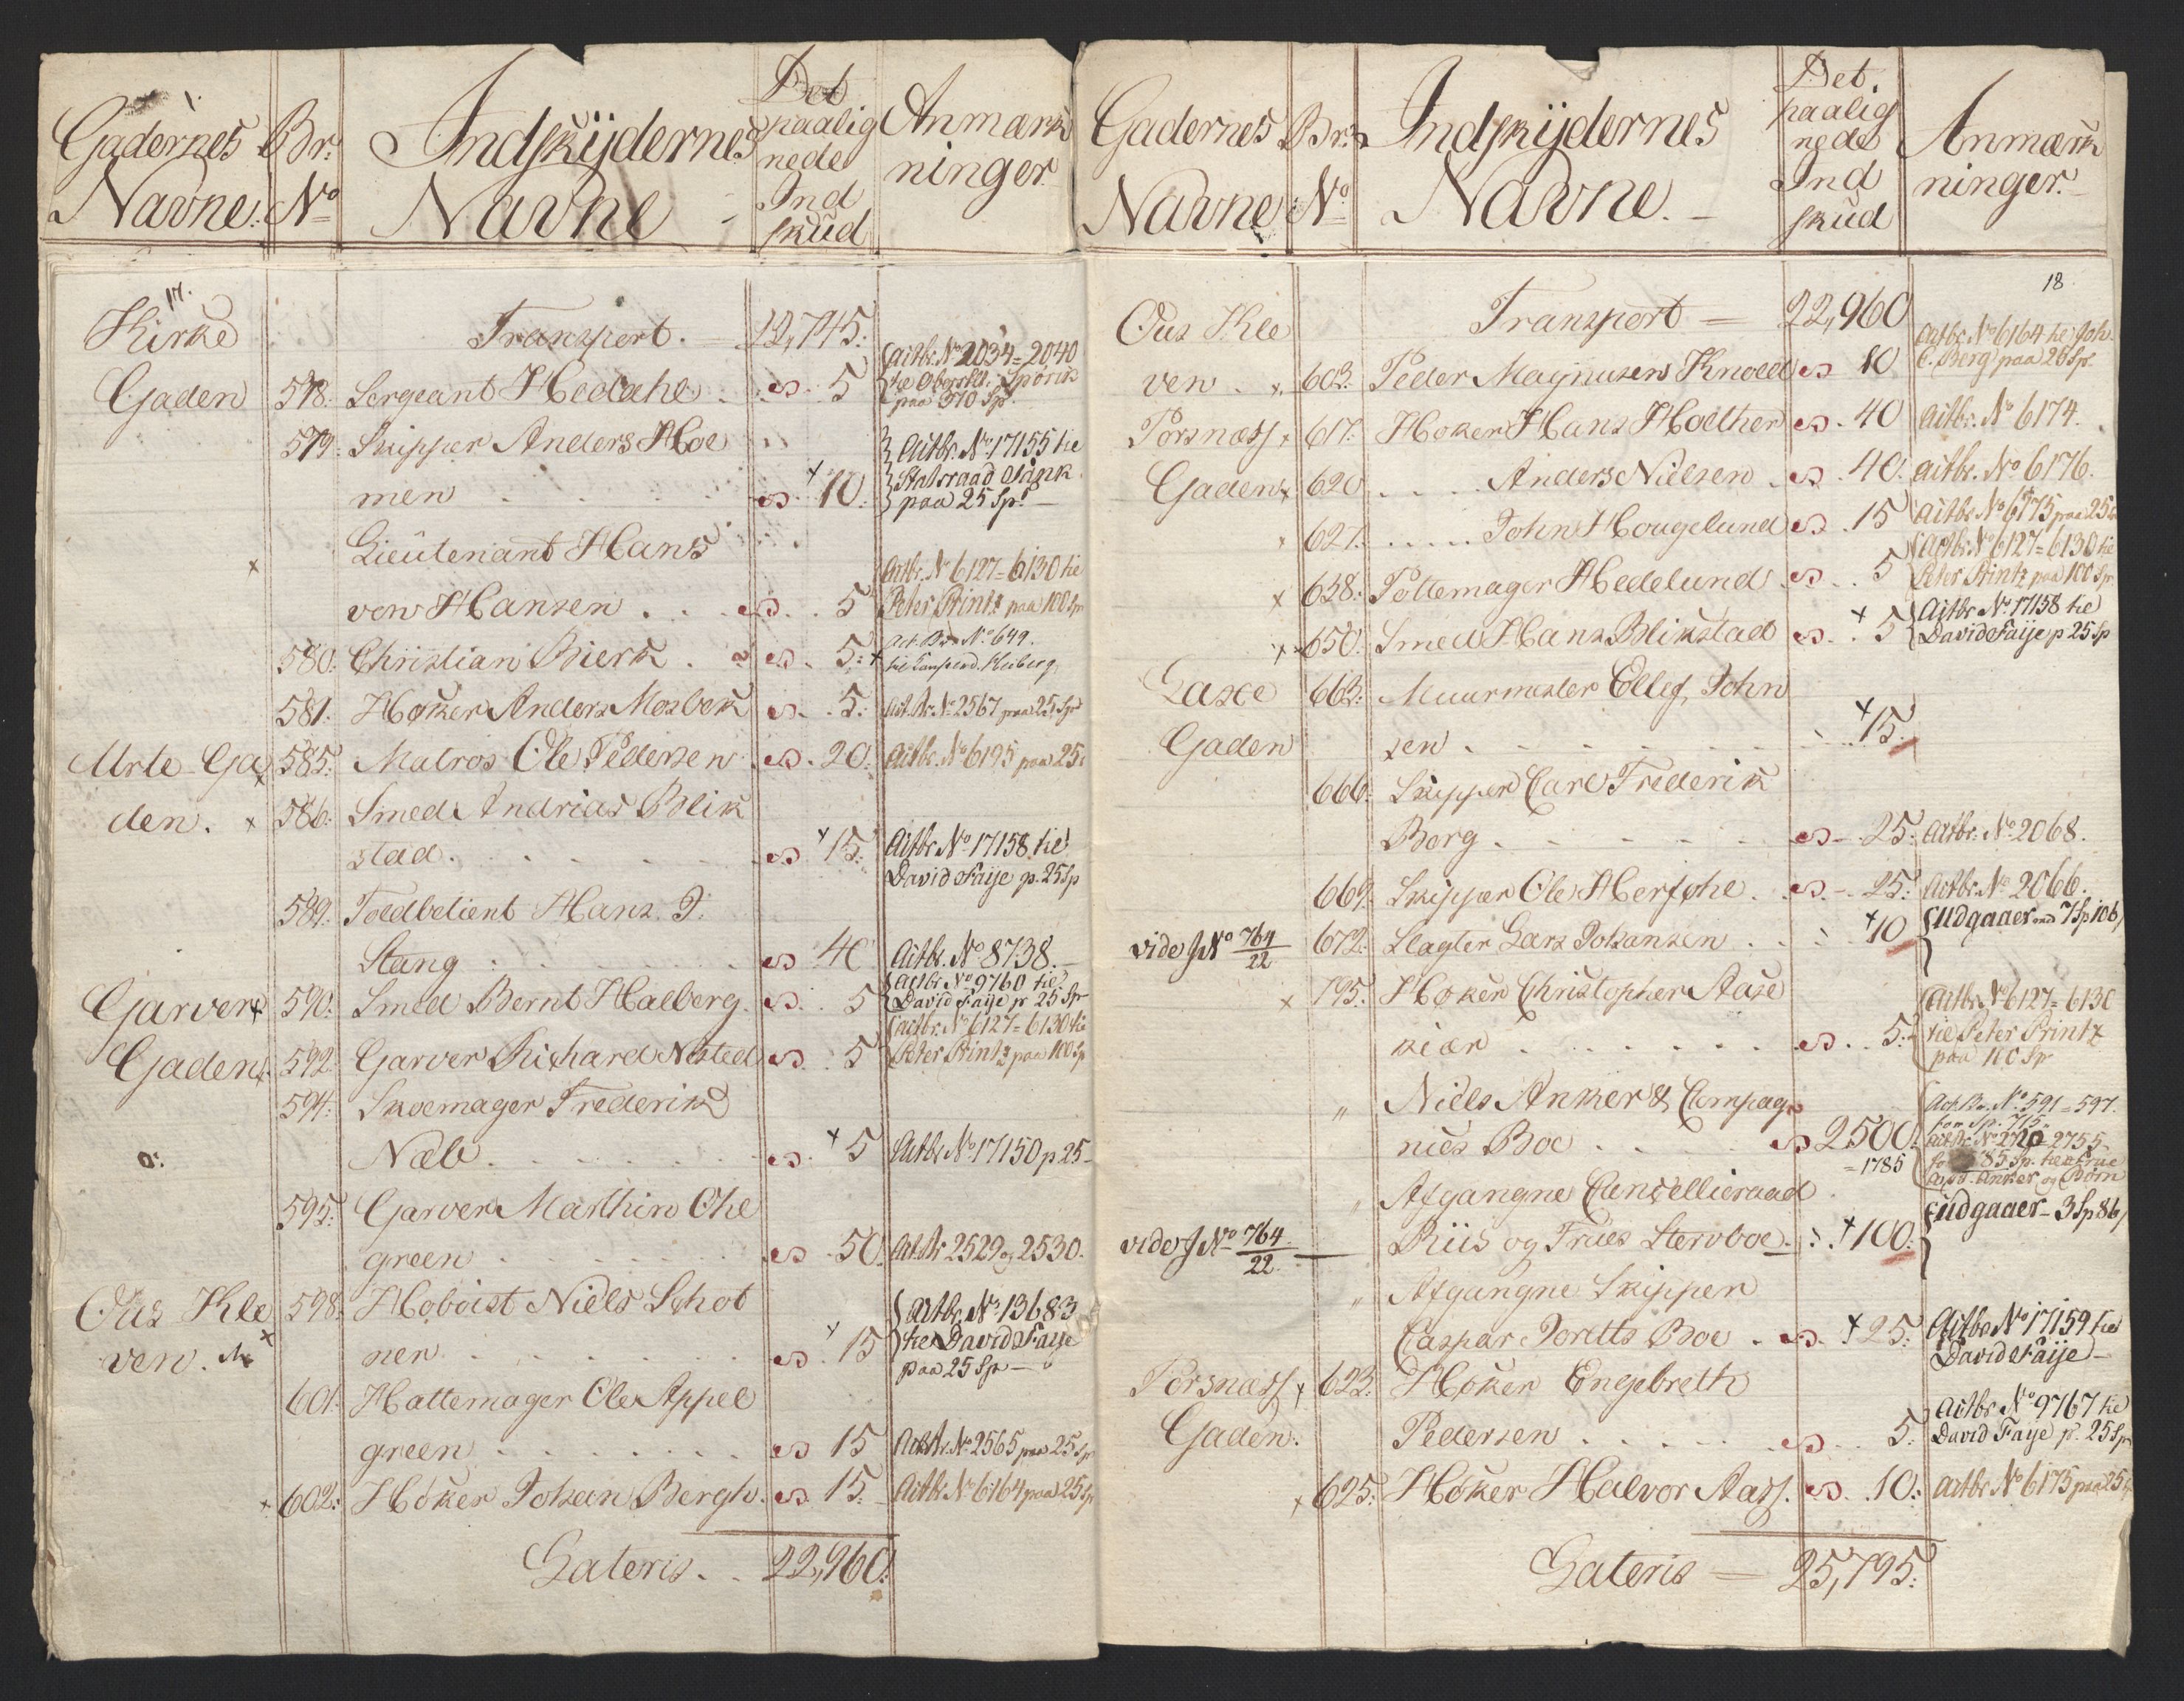 Gadernes Navne. Br: No Indskÿdernes Navne Det paalignede Indskud Anmærkninger
17.
Kirke Transport. 22,745:
Gaden 578. Sergeant Hedahl 5 Actbr. No 2034=2040
paa 370 Sp.
579. Skipper Anders Hol Actbr. No 17155 til
men 10. Statsraad Tank
paa 25 Sp.
Lieutenant Hans
von Hansen 5 Actbr. No 6127=6130 til
Peter Printz paa 100 Sp
580. Christian Bierk 5: Act. Br. No 649.
581. Høker Anders Mosbek 5: Act. Br. No 2567 paa 25 Sp
Urte Ga 585. Matros Ole Pedersen 20. Actbr. No 6195 paa 25
den. 586. Smed Andrias Blik
stad 15. Actbr No 17158 til
David Faÿe p. 25 Sp
589. Toldbetient Hans P.
Stang 40 Actbr. No 8738.
Garver 590. Smed Bernt Halberg 5 Actbr No 9760 til
David Faÿe p 25 Sp
Gaden 592. Garver Richard Nested 5 Actbr. No 6127=6130 til
Peter Printz paa 100 Sp
594. Skoemager Frederik
Næb 5 Actbr No 17150 p 25
595. Garver Marthin Ohl
green 50. Actbr 2529 og 2530.
Ous Kle 598. Hoboist Niels Schot
ven. nen 15 Actbr. No 13683
til David Faÿe
paa 25 Sp
601. Hattemager Ole Appel
green 15 Actbr. No 2565 paa 25 Sp
602. Høker Johan Bergh 15. Actbr No 6164 paa 25 Sp
Lateris 22,960.
Gadernes Navne Br: No Indskÿdernes Navne. Det paalignede Indskud Anmærkninger.
18
Ous Kle Transport = 22,960
ven 603. Peder Magnusen Knold 10 Actbr. No 6164 til Joh.
C. Berg paa 26 Sp.
Torsnæss 617. Høker Hans Holther 40 Actbr. No 6174.
Gaden 620. Anders Nielsen 40. Actbr. No 6176.
627. John Hougelund 15 Actbr No 6175 paa 25
638. Pottemager Hedelund 5 Actbr. No 6127=6130 til
Peter Printz paa 100 Sp
650. Smed Hans Blikstad 5 Actbr No 17158 til
David Faÿe p 25 Sp
Lasse 663. Muurmester Ellef John
Gaden sen 15.
666. Skipper Carl Frederik
Borg 25. Actbr. No 2068.
669. Skipper Ole Herføhl 25. Actbr. No 2066.
vide J No 764/22 672. Slagter Lars Johansen 10 udgaaer med 7 Sp 106
795. Høker Christopher Aase
kiær 5. Actbr No 6127=6130
til Peter Printz
paa 100 Sp
Niels Anker & Compag
nies Boe 2500. Act. Br. No 591=597.
for Sp. 715
=1785 Anker og Børn
Afgangne Cancellieraad
vide J No 764/22 Riis og Frues Stervboe 100. udgaaer 3 Sp 86
Afgangne Skipper
Caspar Joretts Boe 25. Actbr No 17159 til
David Faÿe
Torsnæss 623. Høker Engebreth
Gaden. Pedersen 5. Actbr No 9767 til
David Faye p. 25 Sp
625. Høker Halvor Aass. 10. Actbr No 6175 paa 25
Lateris = 25,795.